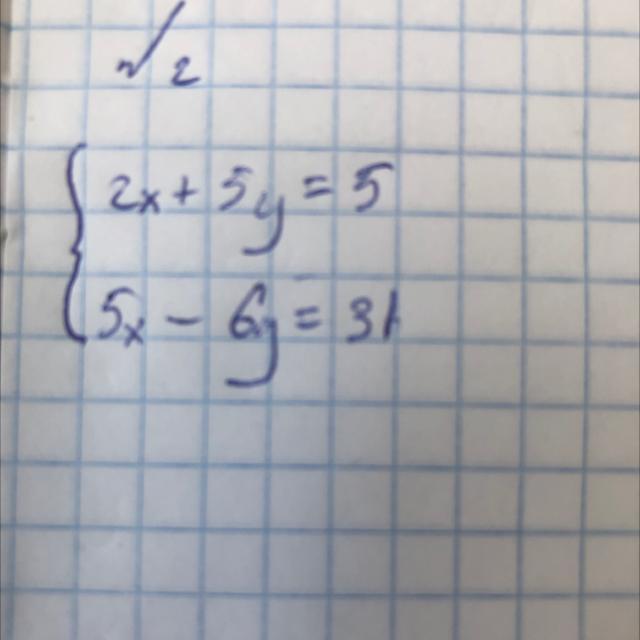 №2
2x + 5y = 5
5x - 6y = 31